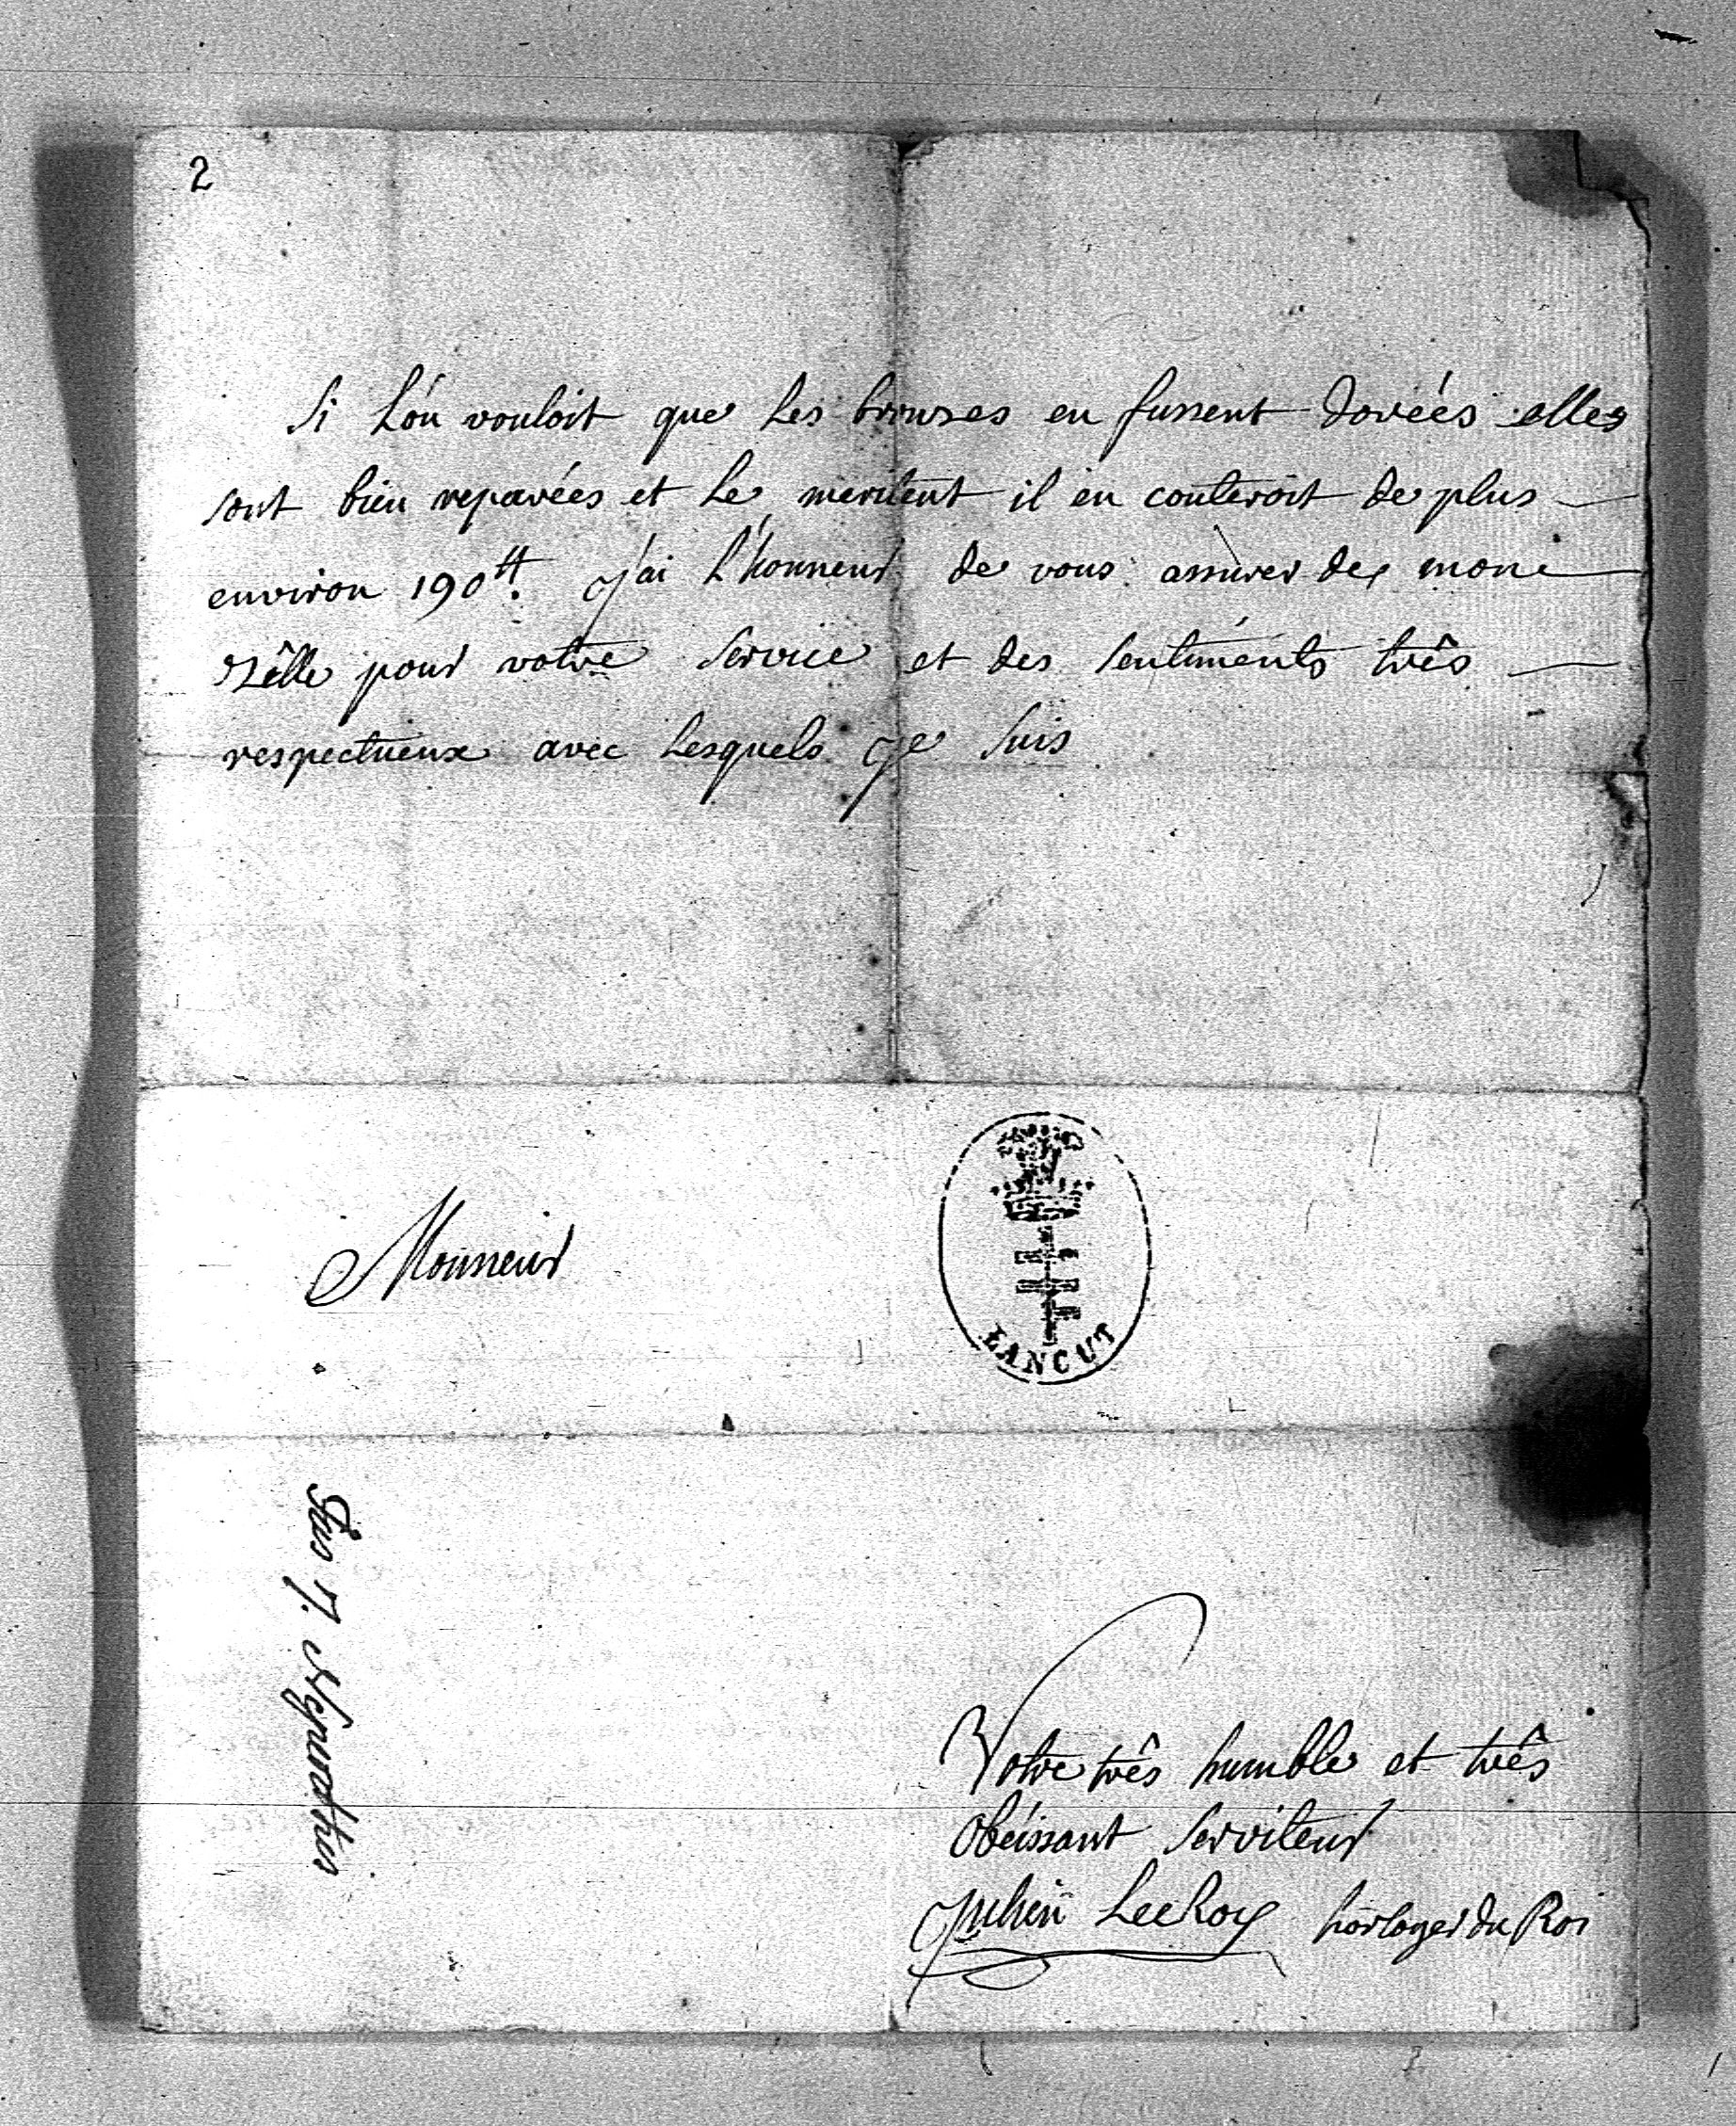 2
Si L'on vouloit que Les bronzes en fussent doréés elles
sont bien reparées et Le meritent il en couteroit de plus
environ 190tt. J'ai L'honneur de vous assurer de mon
Zêlle pour votre Service et des Sentiments três
respectueux avec Lesquels Je Suis
Monsieur
LANCUT
Votre três humble et três
Obéissant Serviteur
Julien LeRoy horloger du Roi